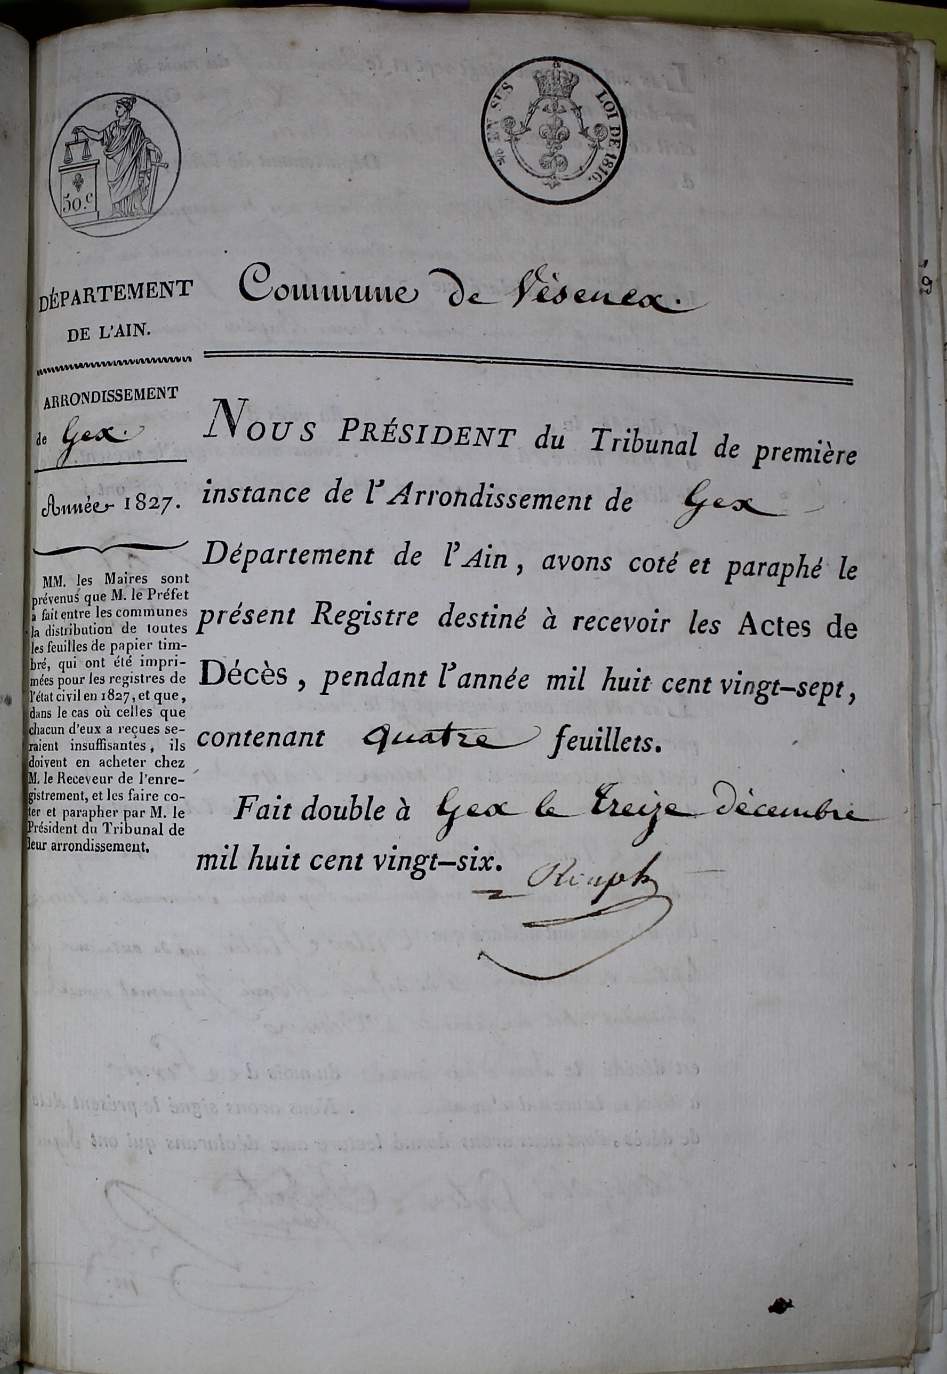 50.c
EN SUS
LOI DE 1816.
DÉPARTEMENT
DE L'AIN.
Commune de Vésenex.
ARRONDISSEMENT
de Gex.
Année 1827.
MM. les Maires sont
prévenus que M. le Préfet
a fait entre les communes
la distribution de toutes
les feuilles de papier tim-
bré, qui ont été impri-
mées pour les registres de
l'état civil en 1827, et que,
dans le cas où celles que
chacun d'eux a reçues se-
raient insuffisantes, ils
doivent en acheter chez
M. le Receveur de l'enre-
gistrement, et les faire co-
ter et parapher par M. le
Président du Tribunal de
leur arrondissement.
NOUS PRÉSIDENT du Tribunal de première
instance de l'Arrondissement de Gex
Département de l'Ain, avons coté et paraphé le
présent Registre destiné à recevoir les Actes de
Décès, pendant l'année mil huit cent vingt-sept,
contenant quatre feuillets.
Fait double à Gex le treize décembre
mil huit cent vingt-six.